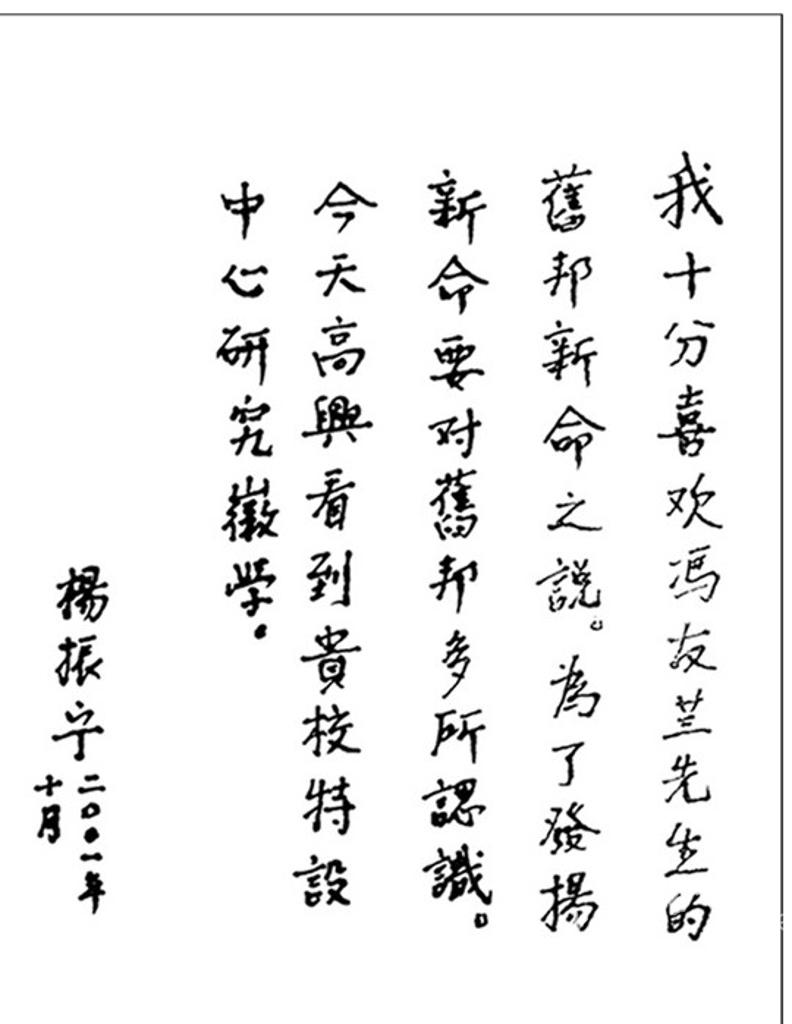 我十分喜欢馮友兰先生的
舊邦新命之説。為了發揚
新命要对舊邦多所認識。
今天高興看到貴校特設
中心研究徽學。
楊振宁
二〇〇一年
十月